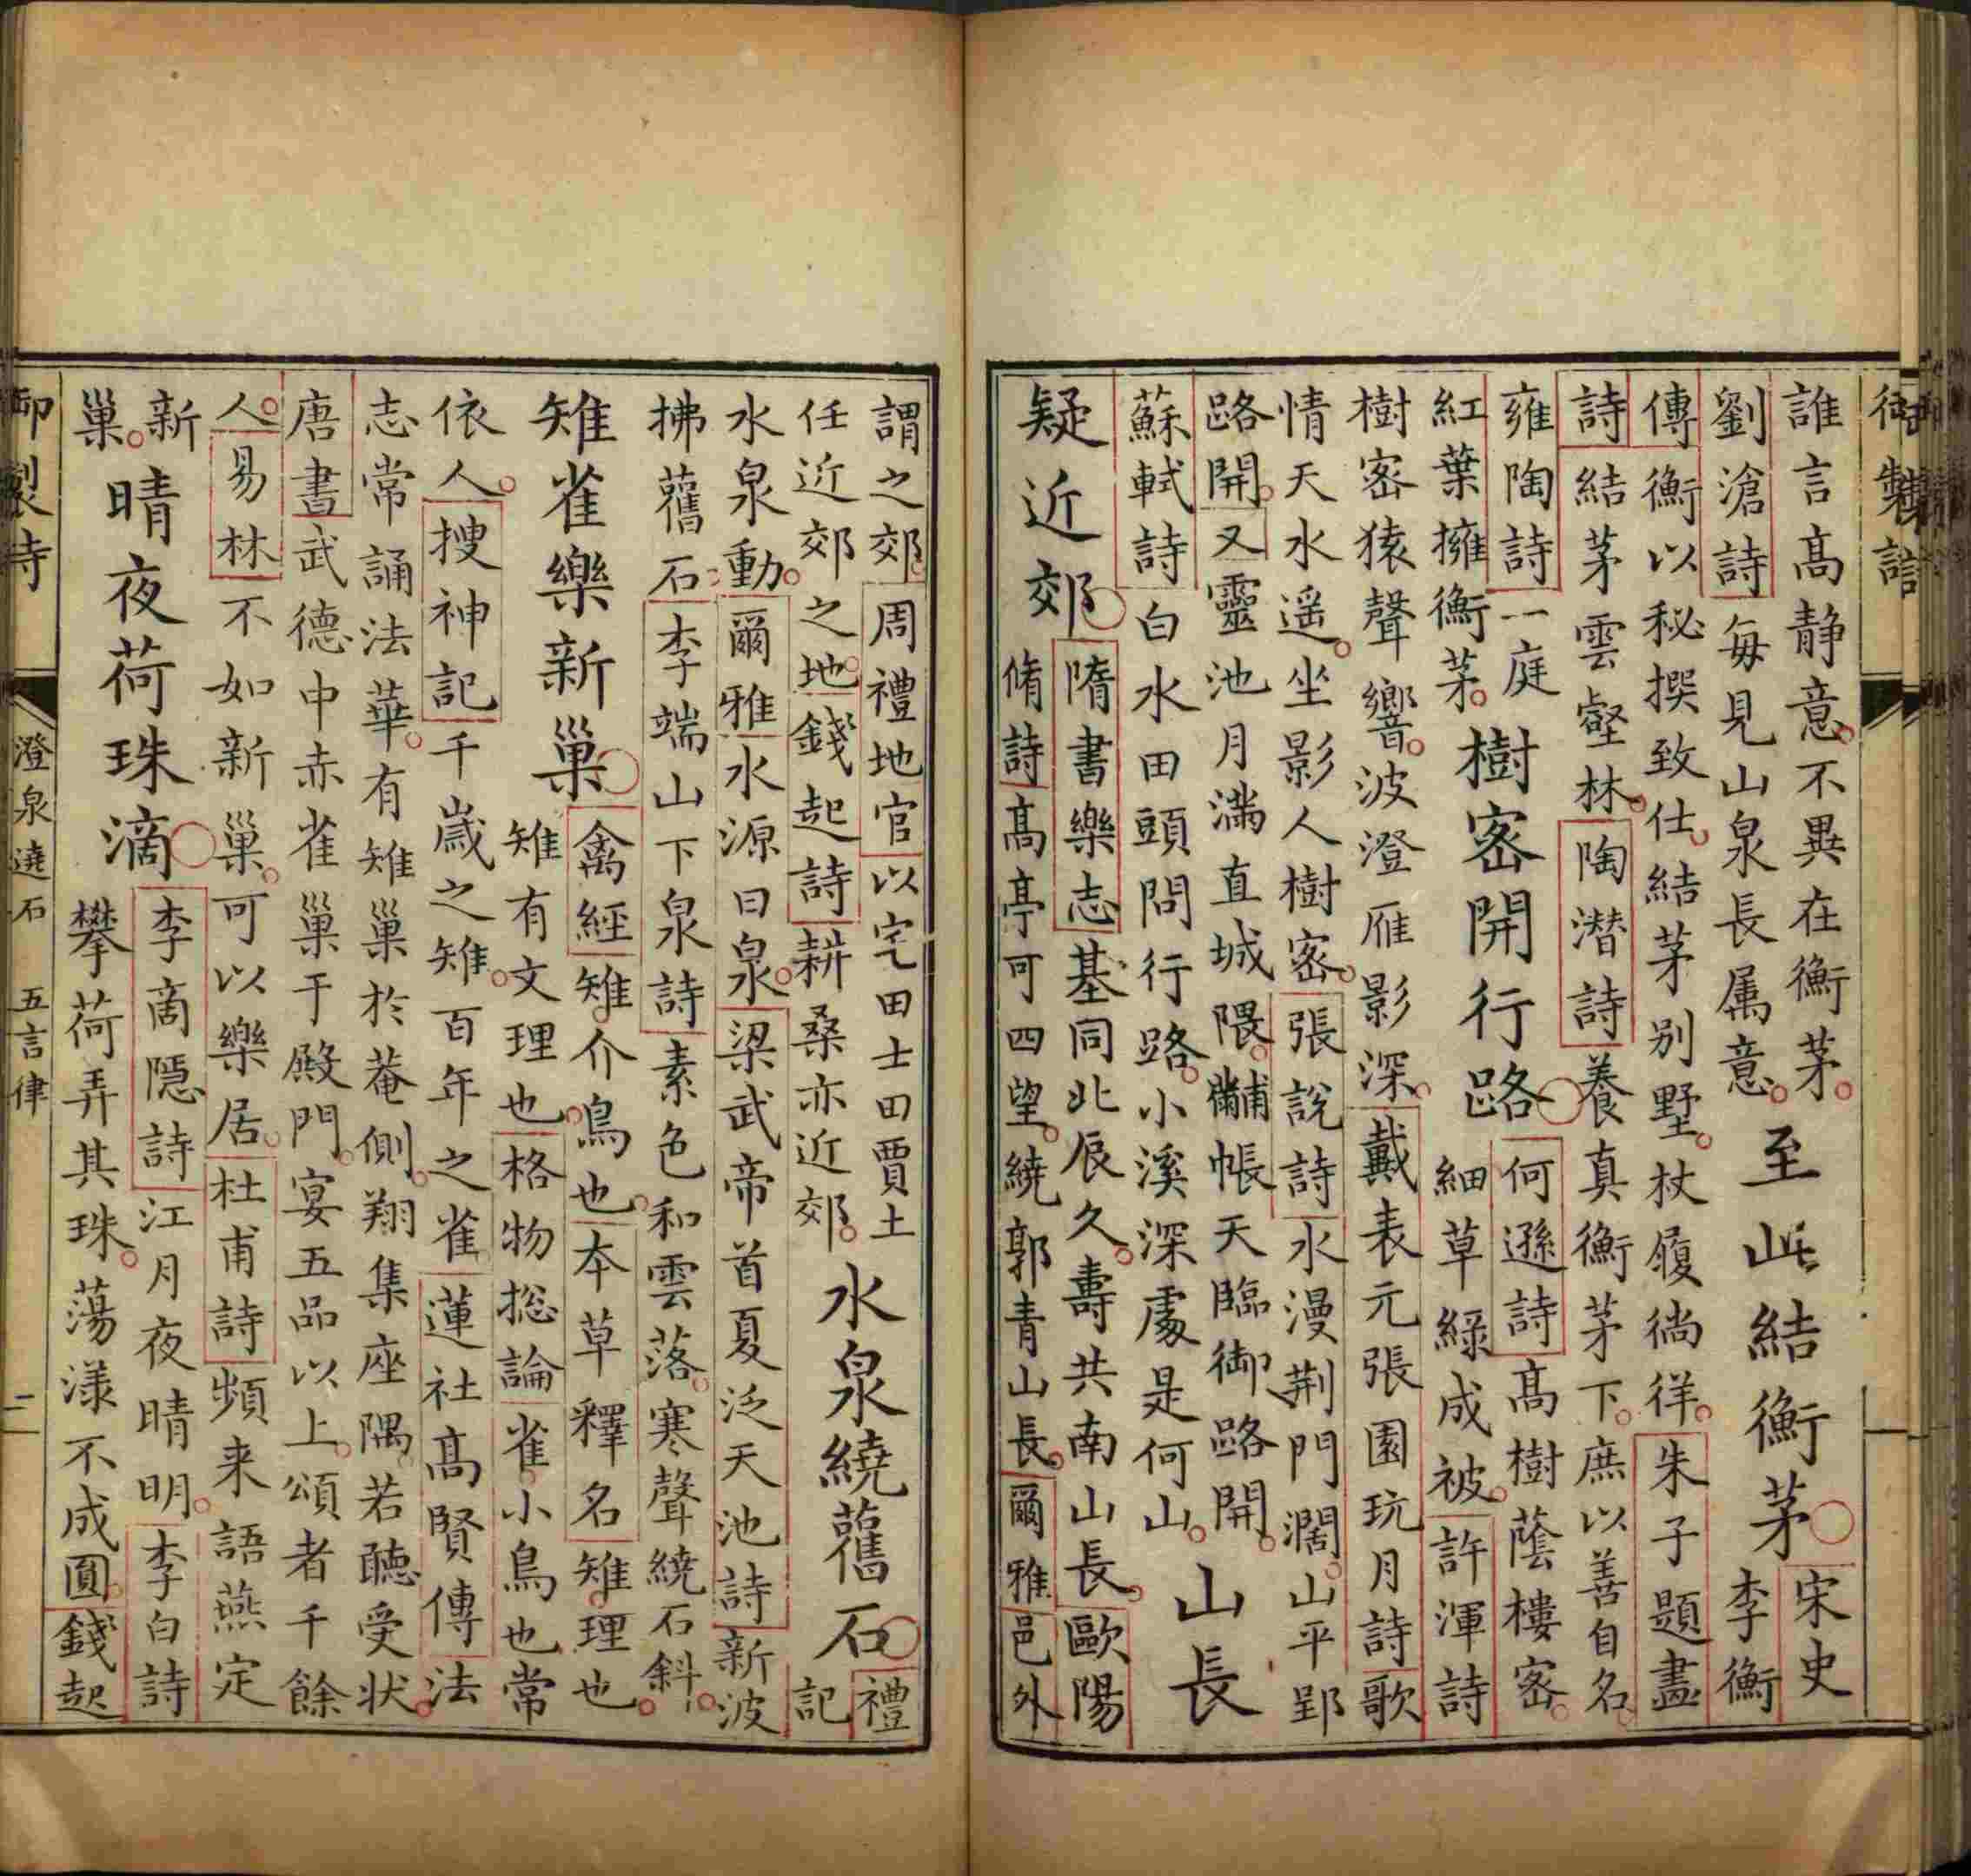 御製詩
誰言高静意不異在衡茅
劉滄詩每見山泉長属意
至此結衡茅
宋史
李衡
傳衡以秘撰致仕結茅别墅杖履徜徉朱子題畫
詩結茅雲壑林陶潜詩養真衡茅下庶以善自名
雍陶詩一庭
紅葉擁衡茅
樹宻開行路
何遜詩高樹蔭樓宻
細草綠成被許渾詩
樹宻猿聲響波澄雁影深戴表元張園玩月詩歌
情天水遥坐影人樹宻張說詩水漫荆門濶山平郢
路開又靈池月滿直城隈黼帳天臨御路開
蘇軾詩白水田頭問行路小溪深處是何山
山長
疑近郊
隋書樂志基同北辰久壽共南山長歐陽
脩詩高亭可四望繞郭青山長爾雅邑外
謂之郊周禮地官以宅田士田賈土
任近郊之地錢起詩耕桑亦近郊
水泉繞舊石
禮
記
水泉動爾雅水源曰泉梁武帝首夏泛天池詩新波
拂舊石李端山下泉詩素色和雲落寒聲繞石斜
雉雀樂新巢
禽經雉介鳥也本草釋名雉理也
雉有文理也格物総論雀小鳥也常
依人搜神記千歲之雉百年之雀蓮社高賢傳法
志常誦法華有雉巢於菴側翔集座隅若聽受状
唐書武德中赤雀巢于殿門宴五品以上頌者千餘
人易林不如新巢可以樂居杜甫詩頻来語燕定
新
巢
晴夜荷珠滴
李商隱詩江月夜晴明李白詩
攀荷弄其珠蕩漾不成圓錢起
御製詩 澄泉遶石 五言律 二